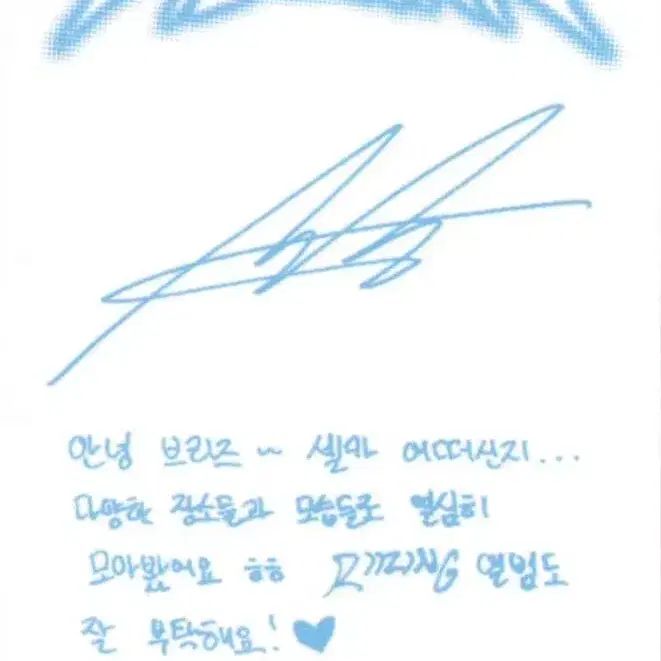 안녕 브리즈~ 셀카 어떠신지...
다양한 장소들과 모습들로 열심히
모아봤어요 ㅎㅎ RIIZING 앨범도
잘 부탁해요! ♥